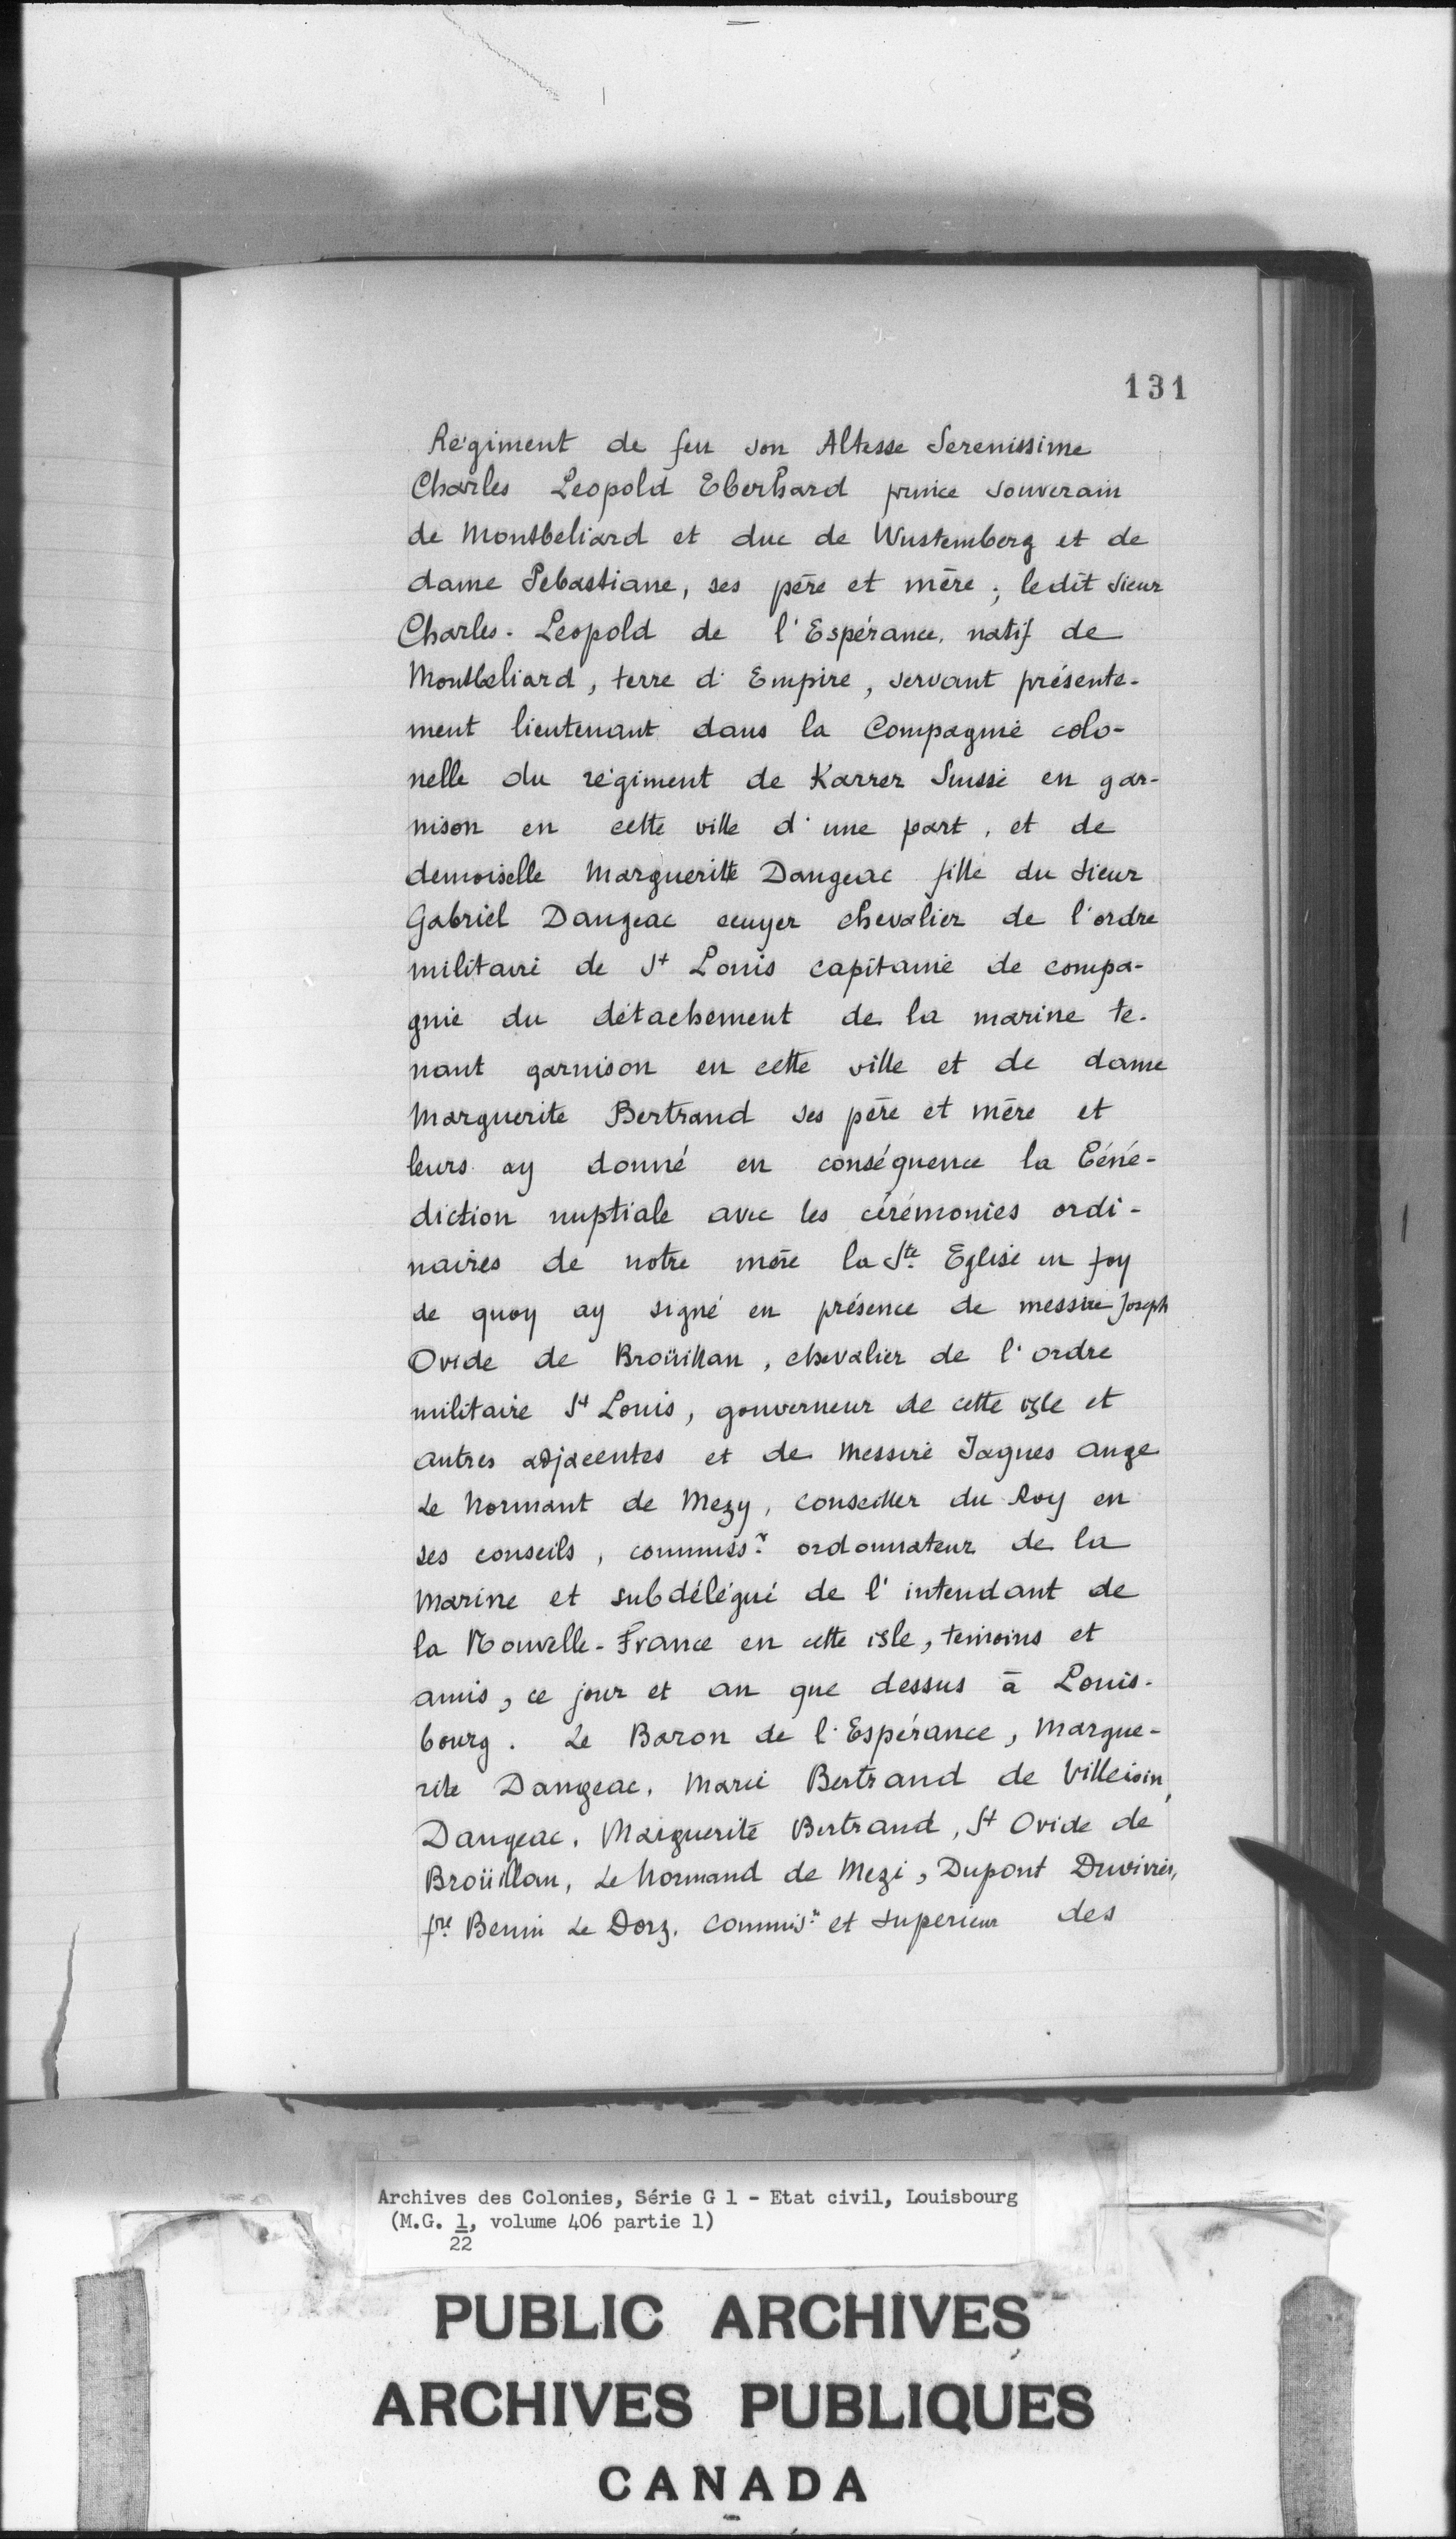 131
Régiment de feu son Altesse Serenissime
Charles Leopold Eberhard prince souverain
de Montbeliard et duc de Wustemberg et de
dame Sebastiane, ses père et mère ; ledit sieur
Charles-Leopold de l'Espérance, natif de
Montbeliard, terre d'Empire, servant présente-
ment lieutenant dans la Compagnie colo-
nelle du régiment de Karrer Suisse en gar-
nison en cette ville d'une part, et de
demoiselle Margueritte Dangeac fille du sieur
Gabriel Dangeac ecuyer chevalier de l'ordre
militaire de St Louis capitaine de compa-
gnie du détachement de la marine te-
nant garnison en cette ville et de dame
Marguerite Bertrand ses père et mère et
leurs ay donné en conséquence la béné-
diction nuptiale avec les cérémonies ordi-
naires de notre mère la Ste Eglise en foy
de quoy ay signé en présence de messire Joseph
Ovide de Broüillan, chevalier de l'ordre
militaire St Louis, gouverneur de cette isle et
autres adjacentes et de Messire Jaques ange
Le Normant de Mezy, conseiller du Roy en
ses conseils, commiss.r ordonnateur de la
Marine et subdélégué de l'intendant de
la Nouvelle-France en cette isle, temoins et
amis, ce jour et an que dessus à Louis-
bourg. Le Baron de l'Espérance, Margue-
rite Dangeac, Marie Bertrand de Villeisin,
Dangeac, Marguerite Bertrand, St Ovide de
Broüillan, Le Normand de Mezi, Dupont Duvivier,
fre Benin Le Dorz, Commis.re et superieur des
Archives des Colonies, Série G 1 - Etat civil, Louisbourg
(M.G. 1, volume 406 partie 1)
22
PUBLIC ARCHIVES
ARCHIVES PUBLIQUES
CANADA